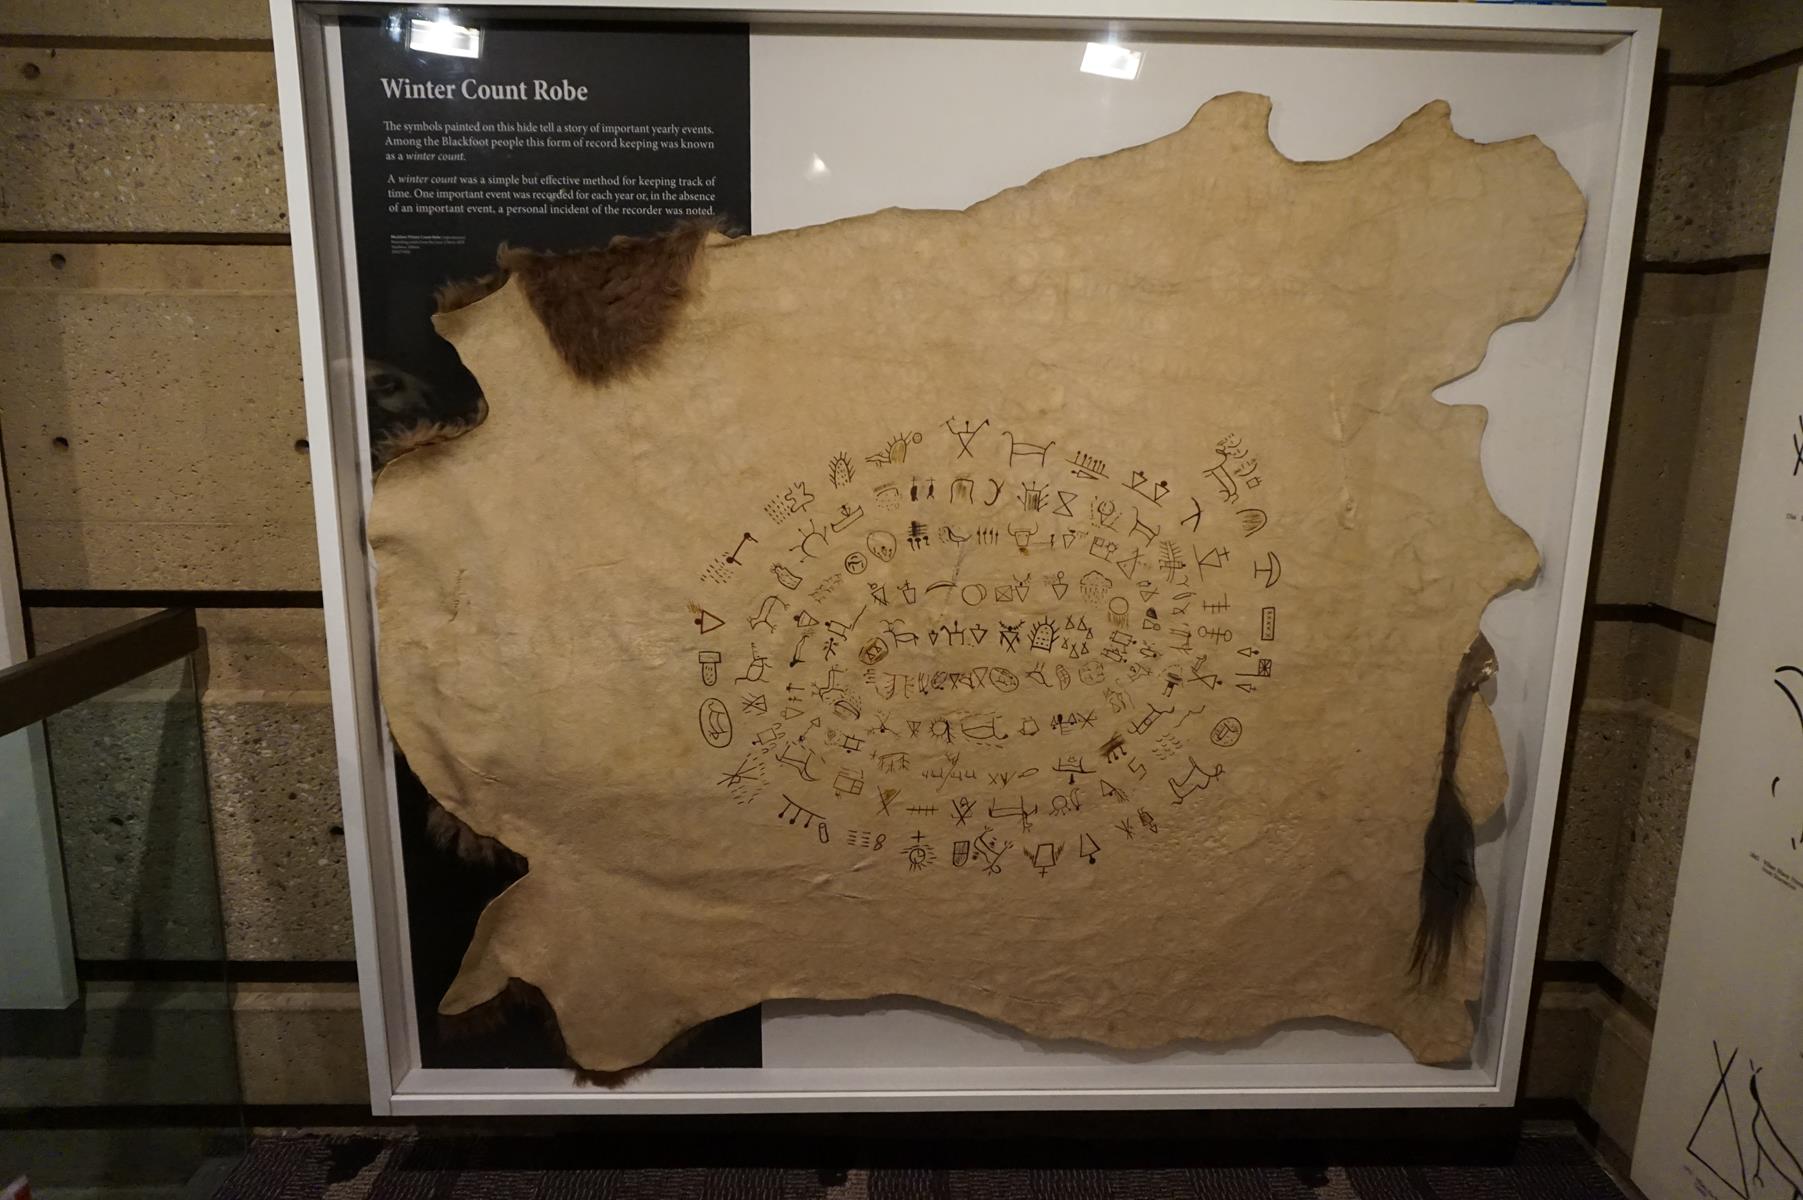 Winter Count Robe
The symbols painted on this hide tell a story of important yearly events.
Among the Blackfoot people this form of record keeping was known
as a winter count.
A winter count was a simple but effective method for keeping track of
time. One important event was recorded for each year or, in the absence
of an important event, a personal incident of the recorder was noted.
Blackfoot Winter Count Robe